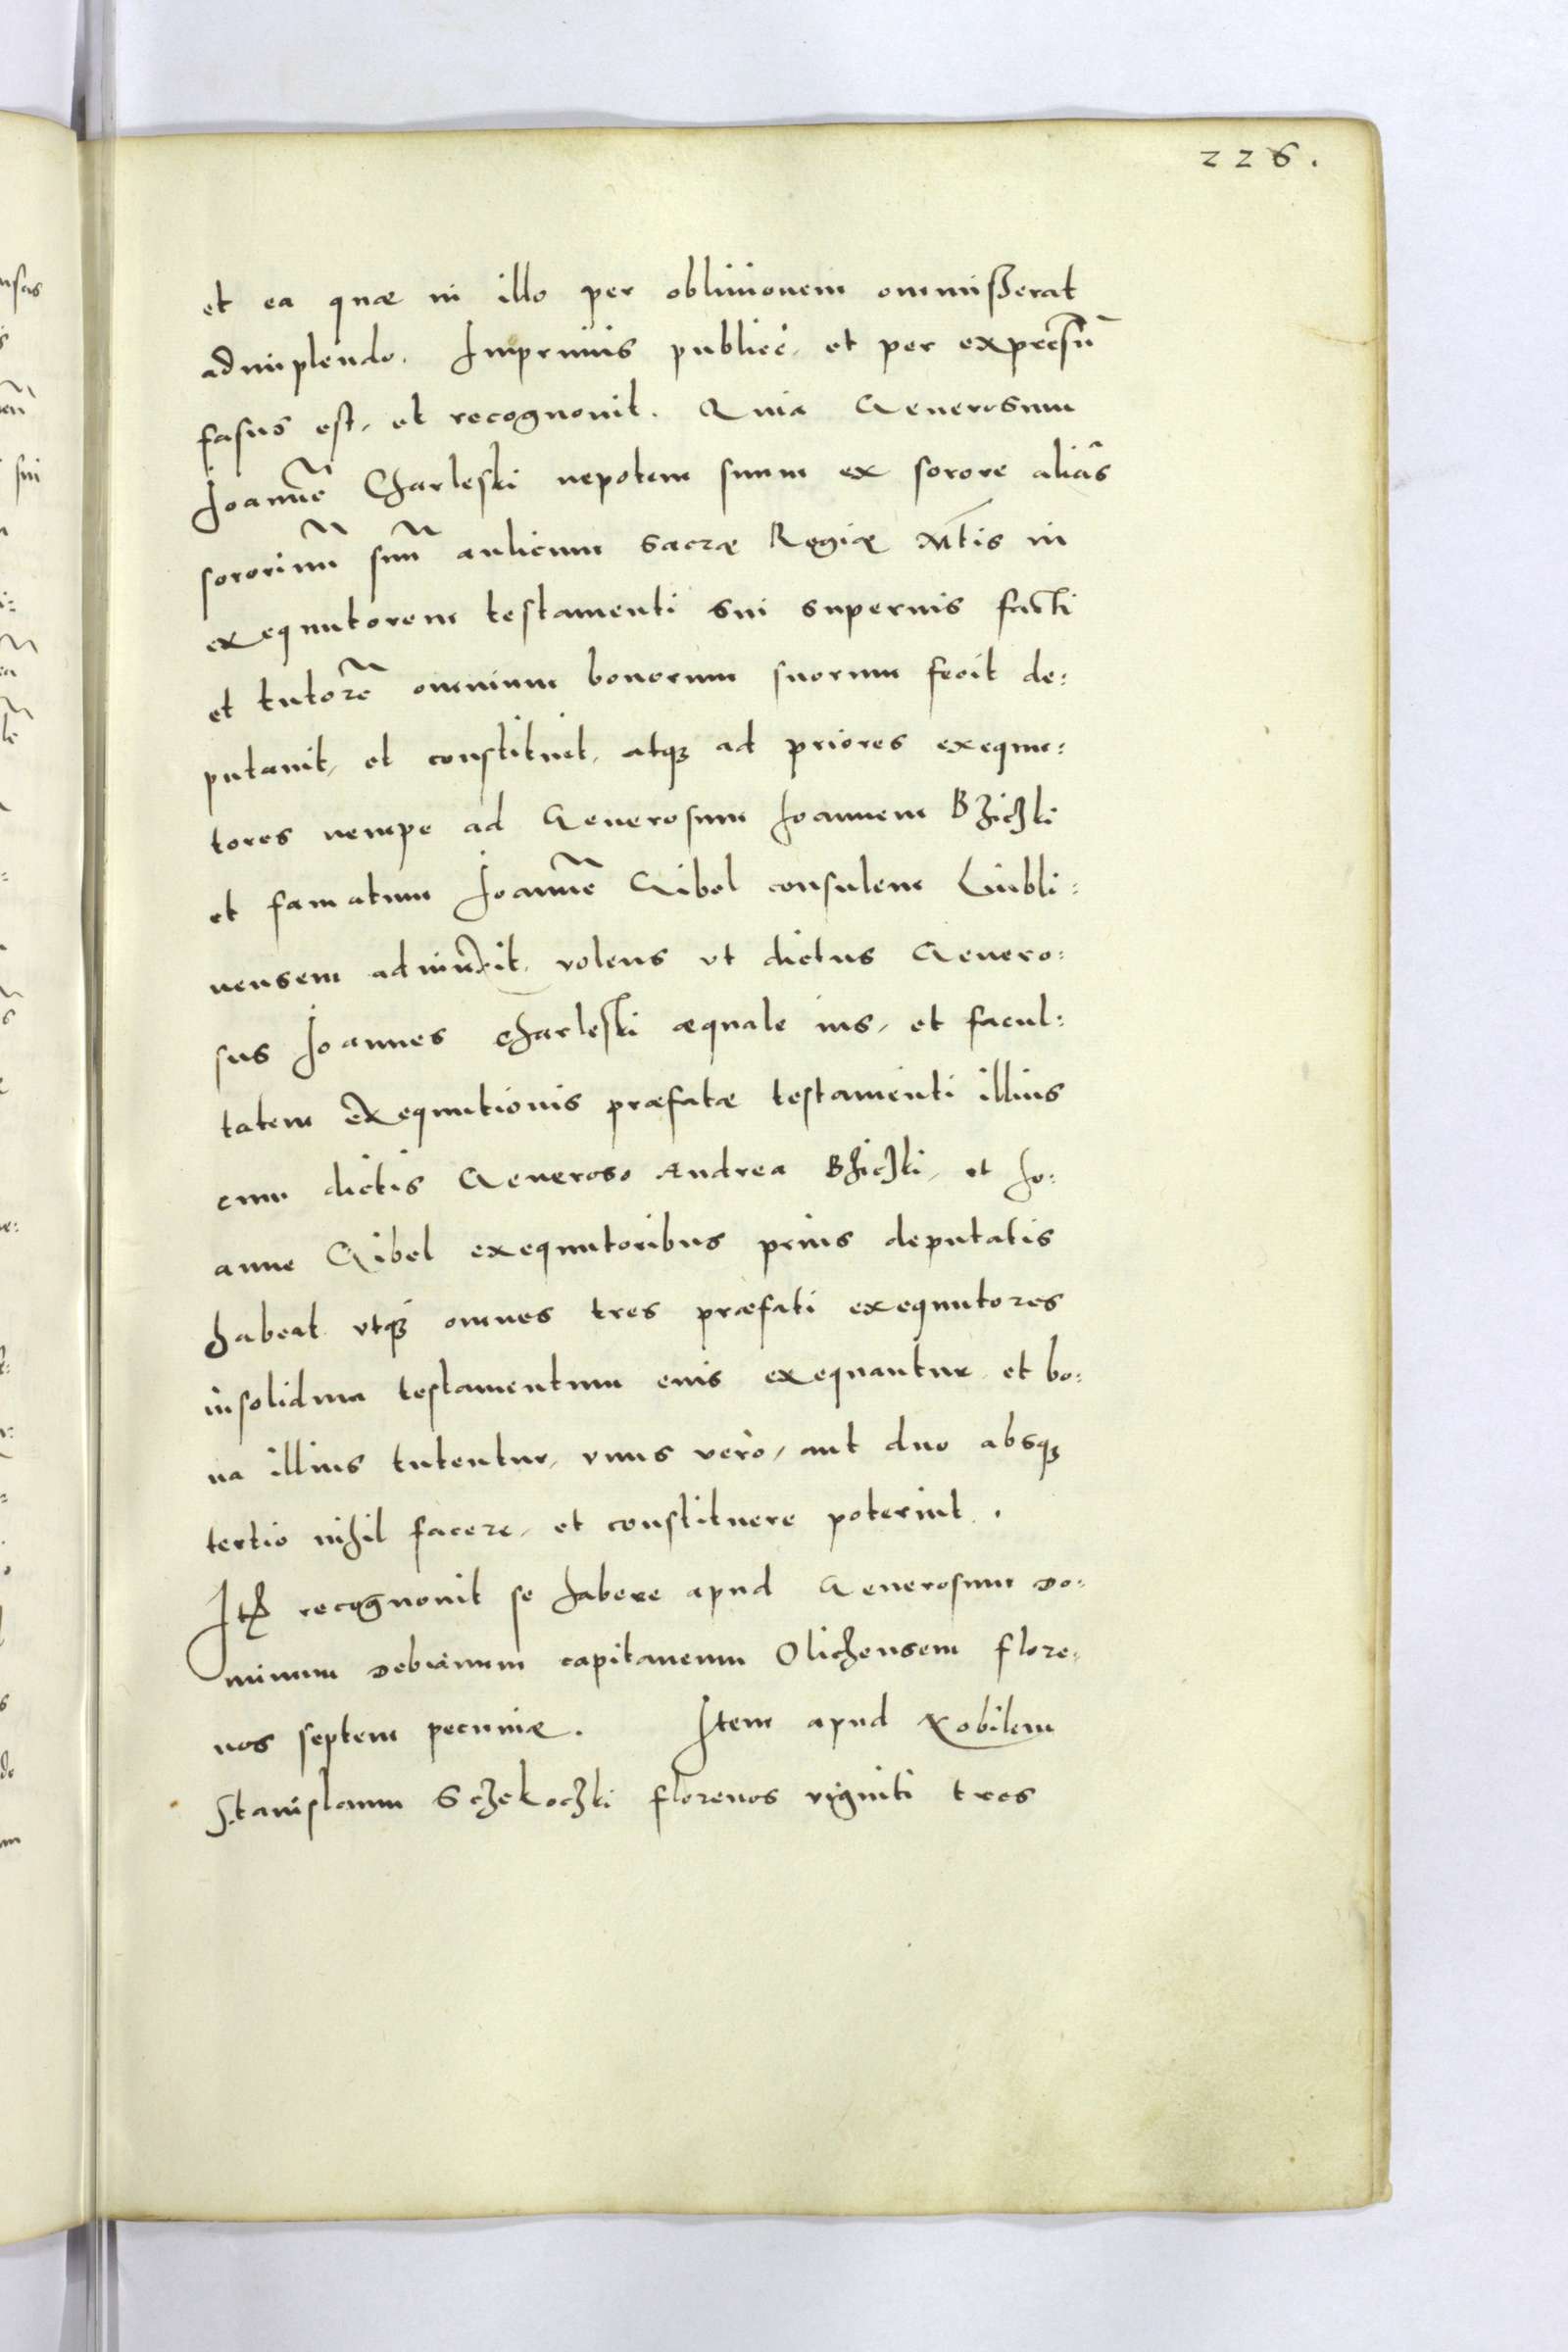 226.
et ea quæ in illo per obliuionem ommisserat
adimplendo. Imprimis publicè, et per expressũ
fasus est, et recognouit. Quia Generosum
Joannẽ Charleski nepotem suum ex sorore aliâs
sororinũ suũ aulicum Sacræ Regiæ Mtis in
exequutorem testamenti sui superius facti
et tutorẽ omnium bonorum suorum fecit de:
putauit, et constituit, atq3 ad priores exequu:
tores nempe ad Generosum Joannem Bziczki
et famatum Joannẽ Gibel consulem Lubli:
nensem adiunxit, volens vt dictus Genero:
sus Joannes Charleski æquale ius, et facul:
tatem exequutionis præfatæ testamenti illius
cum dictis Generoso Andrea Bziczki, et Jo:
anne Gibel exequutoribus prius deputatis
habeat vtq3 omnes tres præfati exequutores
insolidum testamentum eius exequantur et bo:
na illius tutentur, vnus verò, aut duo absq3
tertio nihil facere, et constituere poterint.
Itẽ recognouit se habere apud Generosum Do:
minum Debianum capitaneum Olichensem flore:
nos septem pecuniæ. Item apud Nobilem
Stanislaum Sczekoczki florenos viginti tres